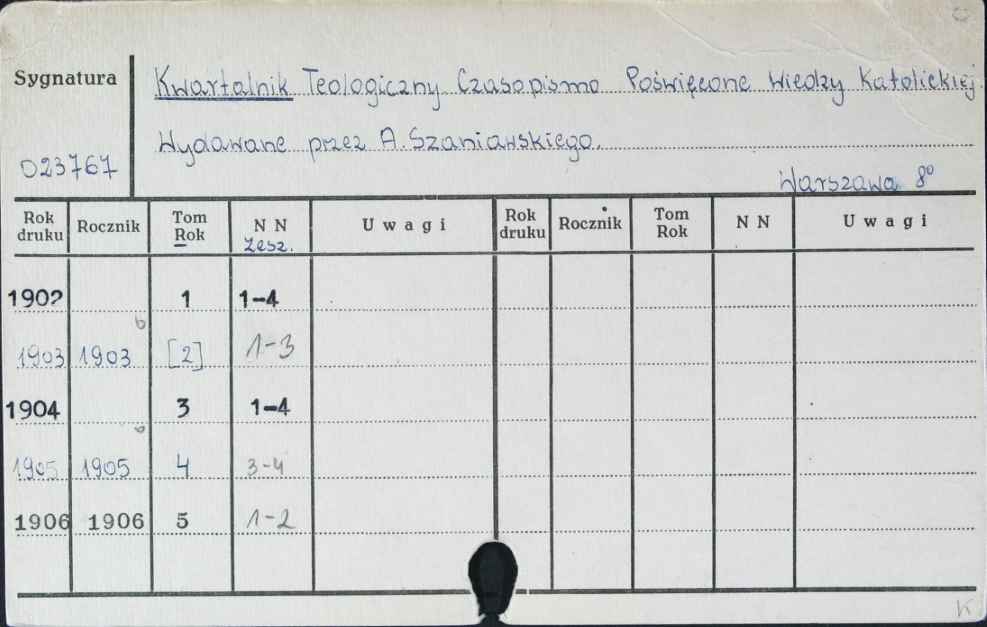 Sygnatura
Kwartalnik Teologiczny Czasopismo Poświęcone Wiedzy Katolickiej.
Wydawane przez A. Szaniawskiego.
023767
Warszawa 8°
Rok druku Rocznik Tom Rok NN Zesz. Uwagi Rok druku Rocznik Tom Rok NN Uwagi
1902 1 1-4
1903 1903 b [2] 1-3
1904 3 1-4
1905 1905 b 4 3-4
1906 1906 5 1-2
K